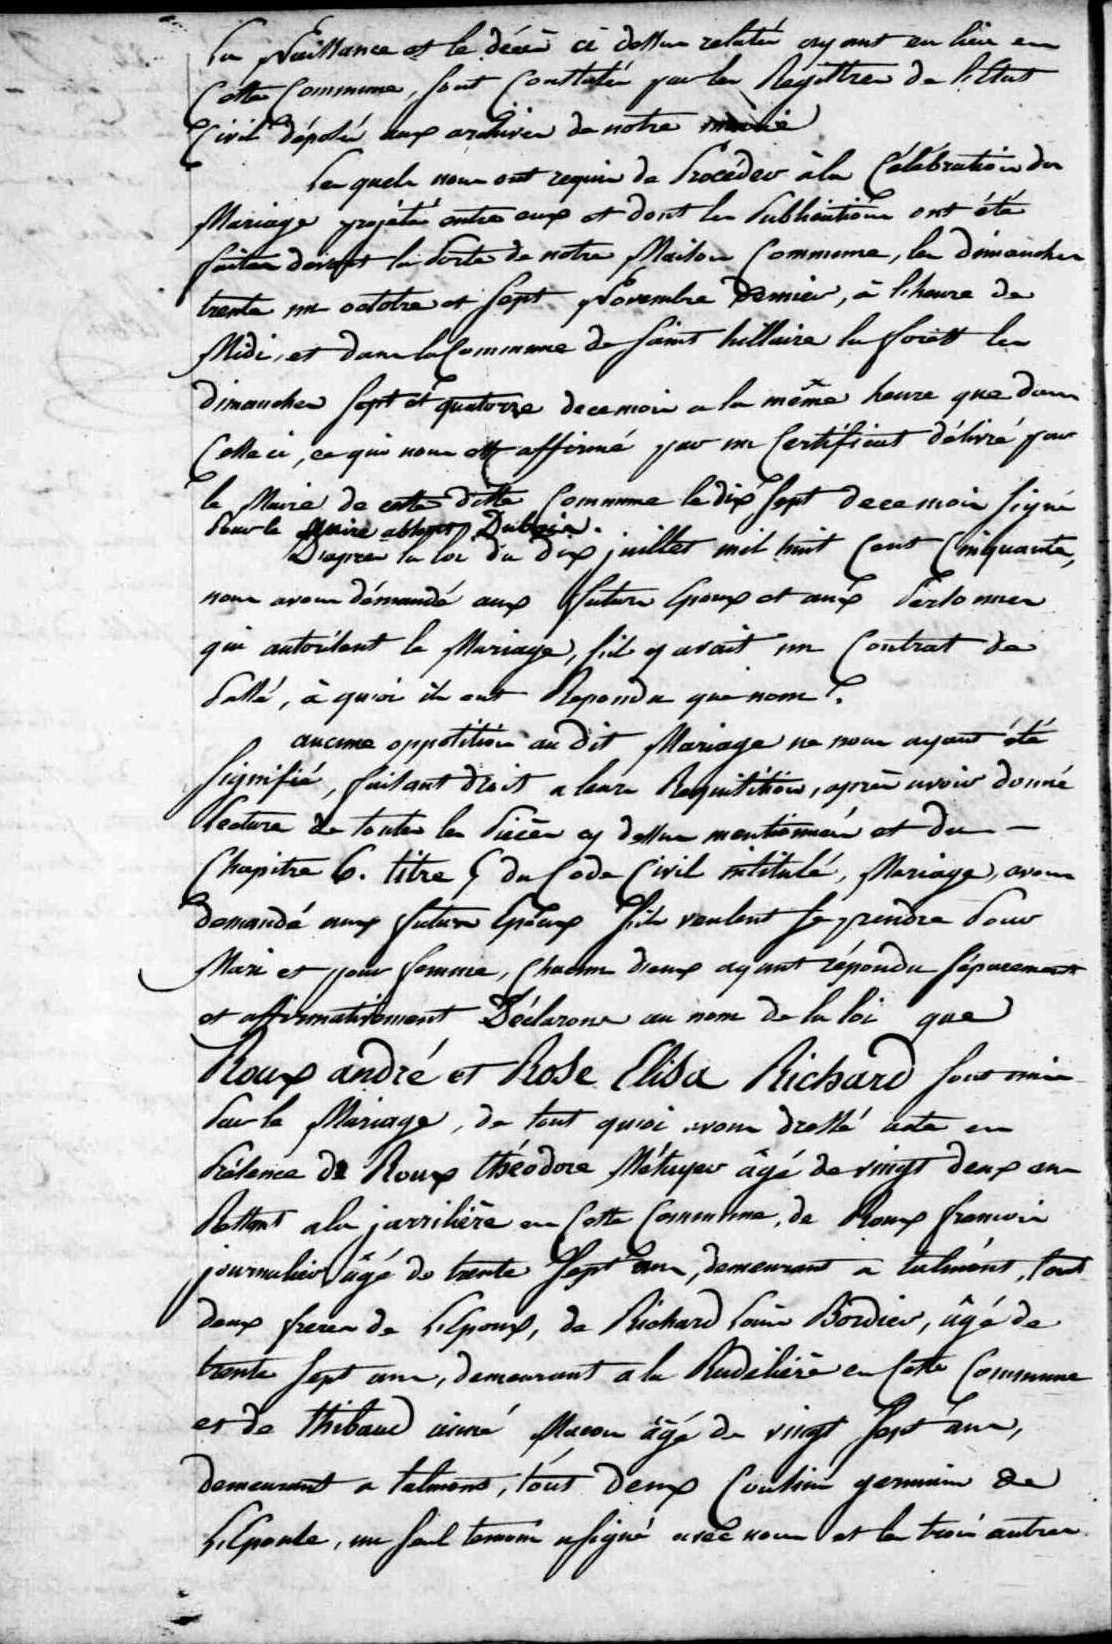 La Naissance et le décès ci dessus relatés ayant eu lieu en
Cette Commune, sont Constatés par les Registres de l'Etat
Civil déposés aux archives de notre mairie
Lesquels nous ont requis de Procéder à la Célébration du
Mariage projété entre eux et dont les Publications ont été
faites devant la Porte de notre Maison Commune, les dimanches
trente un octobre et sept Novembre Dernier, à l'heure de
Midi, et dans la Commune de Saint hillaire la forêt les
dimanches sept et quatorze de ce mois a la même heure que dans
Celle ci, ce qui nous est affirmé par un Certificat délivré par
le Maire de cette ditte Commune le dix sept de ce mois signé
Pour le Maire absent,
D'apres la loi du dix juillet mil huit Cent Cinquante,
nous avons démandé aux futurs Epoux et aux Personnes
qui autorisent le Mariage, s'il y avait un Contrat de
Passé, à quoi ils ont Repondu que nom.
aucune oppotition au dit Mariage ne nous ayant été
signifié, faisant droit a leurs Requisition, après avoir donné
lecture de toutes les Pièces cy dessus mentionnés et du
Chapitre 6. titre 5 du Code Civil intitulé, Mariage, avons
demandé aux futurs Epoux s'ils veulent se prendre Pour
Mari et pour femme, Chacun d'eux ayant répondu séparement
et affirmativement Déclarons au nom de la loi que
Roux andré et Rose Elisa Richard sont unis
Par le Mariage, de tout quoi avons dressé acte en
Présence de Roux théodore Métayer âgé de vingt deux ans
Restant a la jarrilière en Cette Commune, de Roux francois
journalier âgé de trente sept ans, demeurant a talmont, tout
deux freres de L'Epoux, de Richard Louis Bordier, âgé de
trente sept ans, demeurant a la Rudelière en Cette Commune
et de thibaud aimé Macon âgé de vingt sept ans,
demeurant a talmont, tout deux Coushin germain de
L'Epouse, un seul temoin a signé avec nous et les trois autres